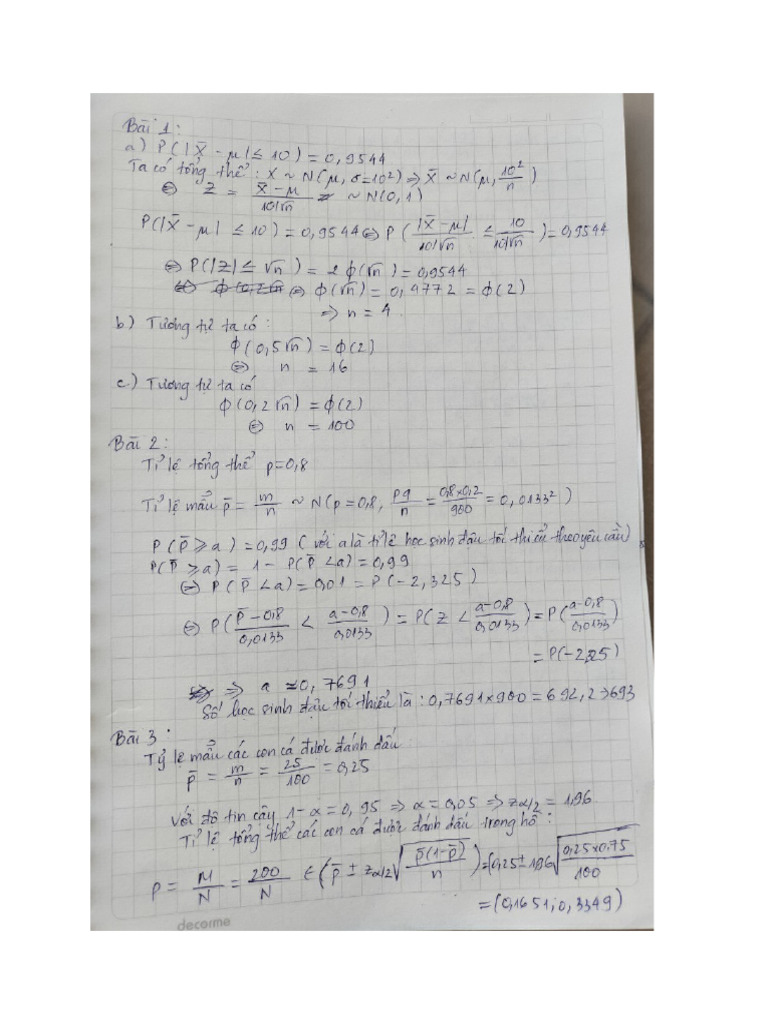 Bài 1:
a) P(|X̄ - μ| ≤ 10) = 0,9544
Ta có tổng thể: X ~ N(μ, σ=10²) ⇒ X̄ ~ N(μ, 10²/n)
⇔ Z = (X̄ - μ)/(10/√n) ~ N(0,1)
P(|X̄ - μ| ≤ 10) = 0,9544 ⇔ P(|X̄ - μ|/(10/√n) ≤ 10/(10/√n)) = 0,9544
⇔ P(|Z| ≤ √n) = 2 ϕ(√n) = 0,9544
⇔ ϕ(√n) = 0,4772 = ϕ(2)
⇒ n = 4
b) Tương tự ta có:
ϕ(0,5√n) = ϕ(2)
⇔ n = 16
c) Tương tự ta có
ϕ(0,2√n) = ϕ(2)
⇔ n = 100
Bài 2:
Tỉ lệ tổng thể p=0,8
Tỉ lệ mẫu p̄ = m/n ~ N(p=0,8, pq/n = 0,8×0,2/900 = 0,0133²)
P(p̄ ≥ a) = 0,99 (với a là tỉ lệ học sinh đậu tối thiểu theo yêu cầu)
P(p̄ ≥ a) = 1 - P(p̄ < a) = 0,99
⇔ P(p̄ < a) = 0,01 = P(-2,325)
⇔ P((p̄ - 0,8)/0,0133 < (a-0,8)/0,0133) = P(Z < (a-0,8)/0,0133) = P((a-0,8)/0,0133)
= P(-2,325)
⇒ a ≈ 0,7691
Số học sinh đậu tối thiểu là: 0,7691×900 = 692,2 → 693
Bài 3:
Tỷ lệ mẫu các con cá được đánh dấu
p̄ = m/n = 25/100 = 0,25
Với độ tin cậy 1-α = 0,95 ⇒ α = 0,05 ⇒ zα/2 = 1,96
Tỉ lệ tổng thể các con cá được đánh dấu trong hồ:
P = M/N = 200/N ∈ (p̄ ± zα/2 √(p̄(1-p̄)/n)) = (0,25 ± 1,96 √(0,25×0,75/100)
= (0,1651; 0,3349)
decorme